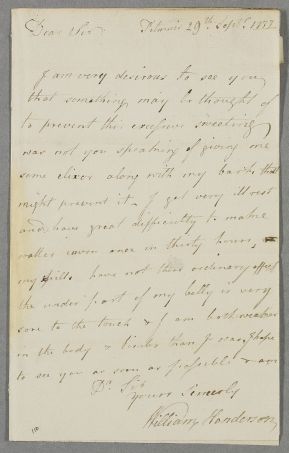 Dear Sir Pitmuis 29th Septr. 1777
I am very desirous to see you
that something may be thought of
to prevent this excessive sweating
was not you speaking of giving me
some elixer along with my bark that
might prevent it. I get very ill rest
and have great difficulty to make
water even once in thirty hours,
my pills have not there ordinary effect
the under part of my belly is very
sore to the touch & I am both weaker
in the body & than I was hope
to see you as soon as possible & am
Dr. Sir
Yours Sincerely
William Henderson